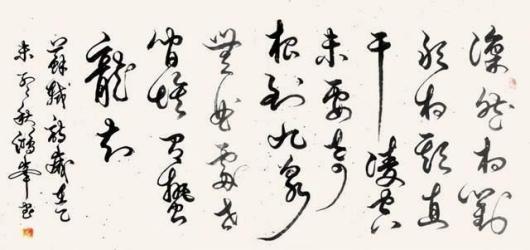 凜然相對
敢相欺直
干凌空
未要奇
根到九泉
無曲處世
間惟有蟄
龍知
蘇軾詩歲在乙
未秋峰書